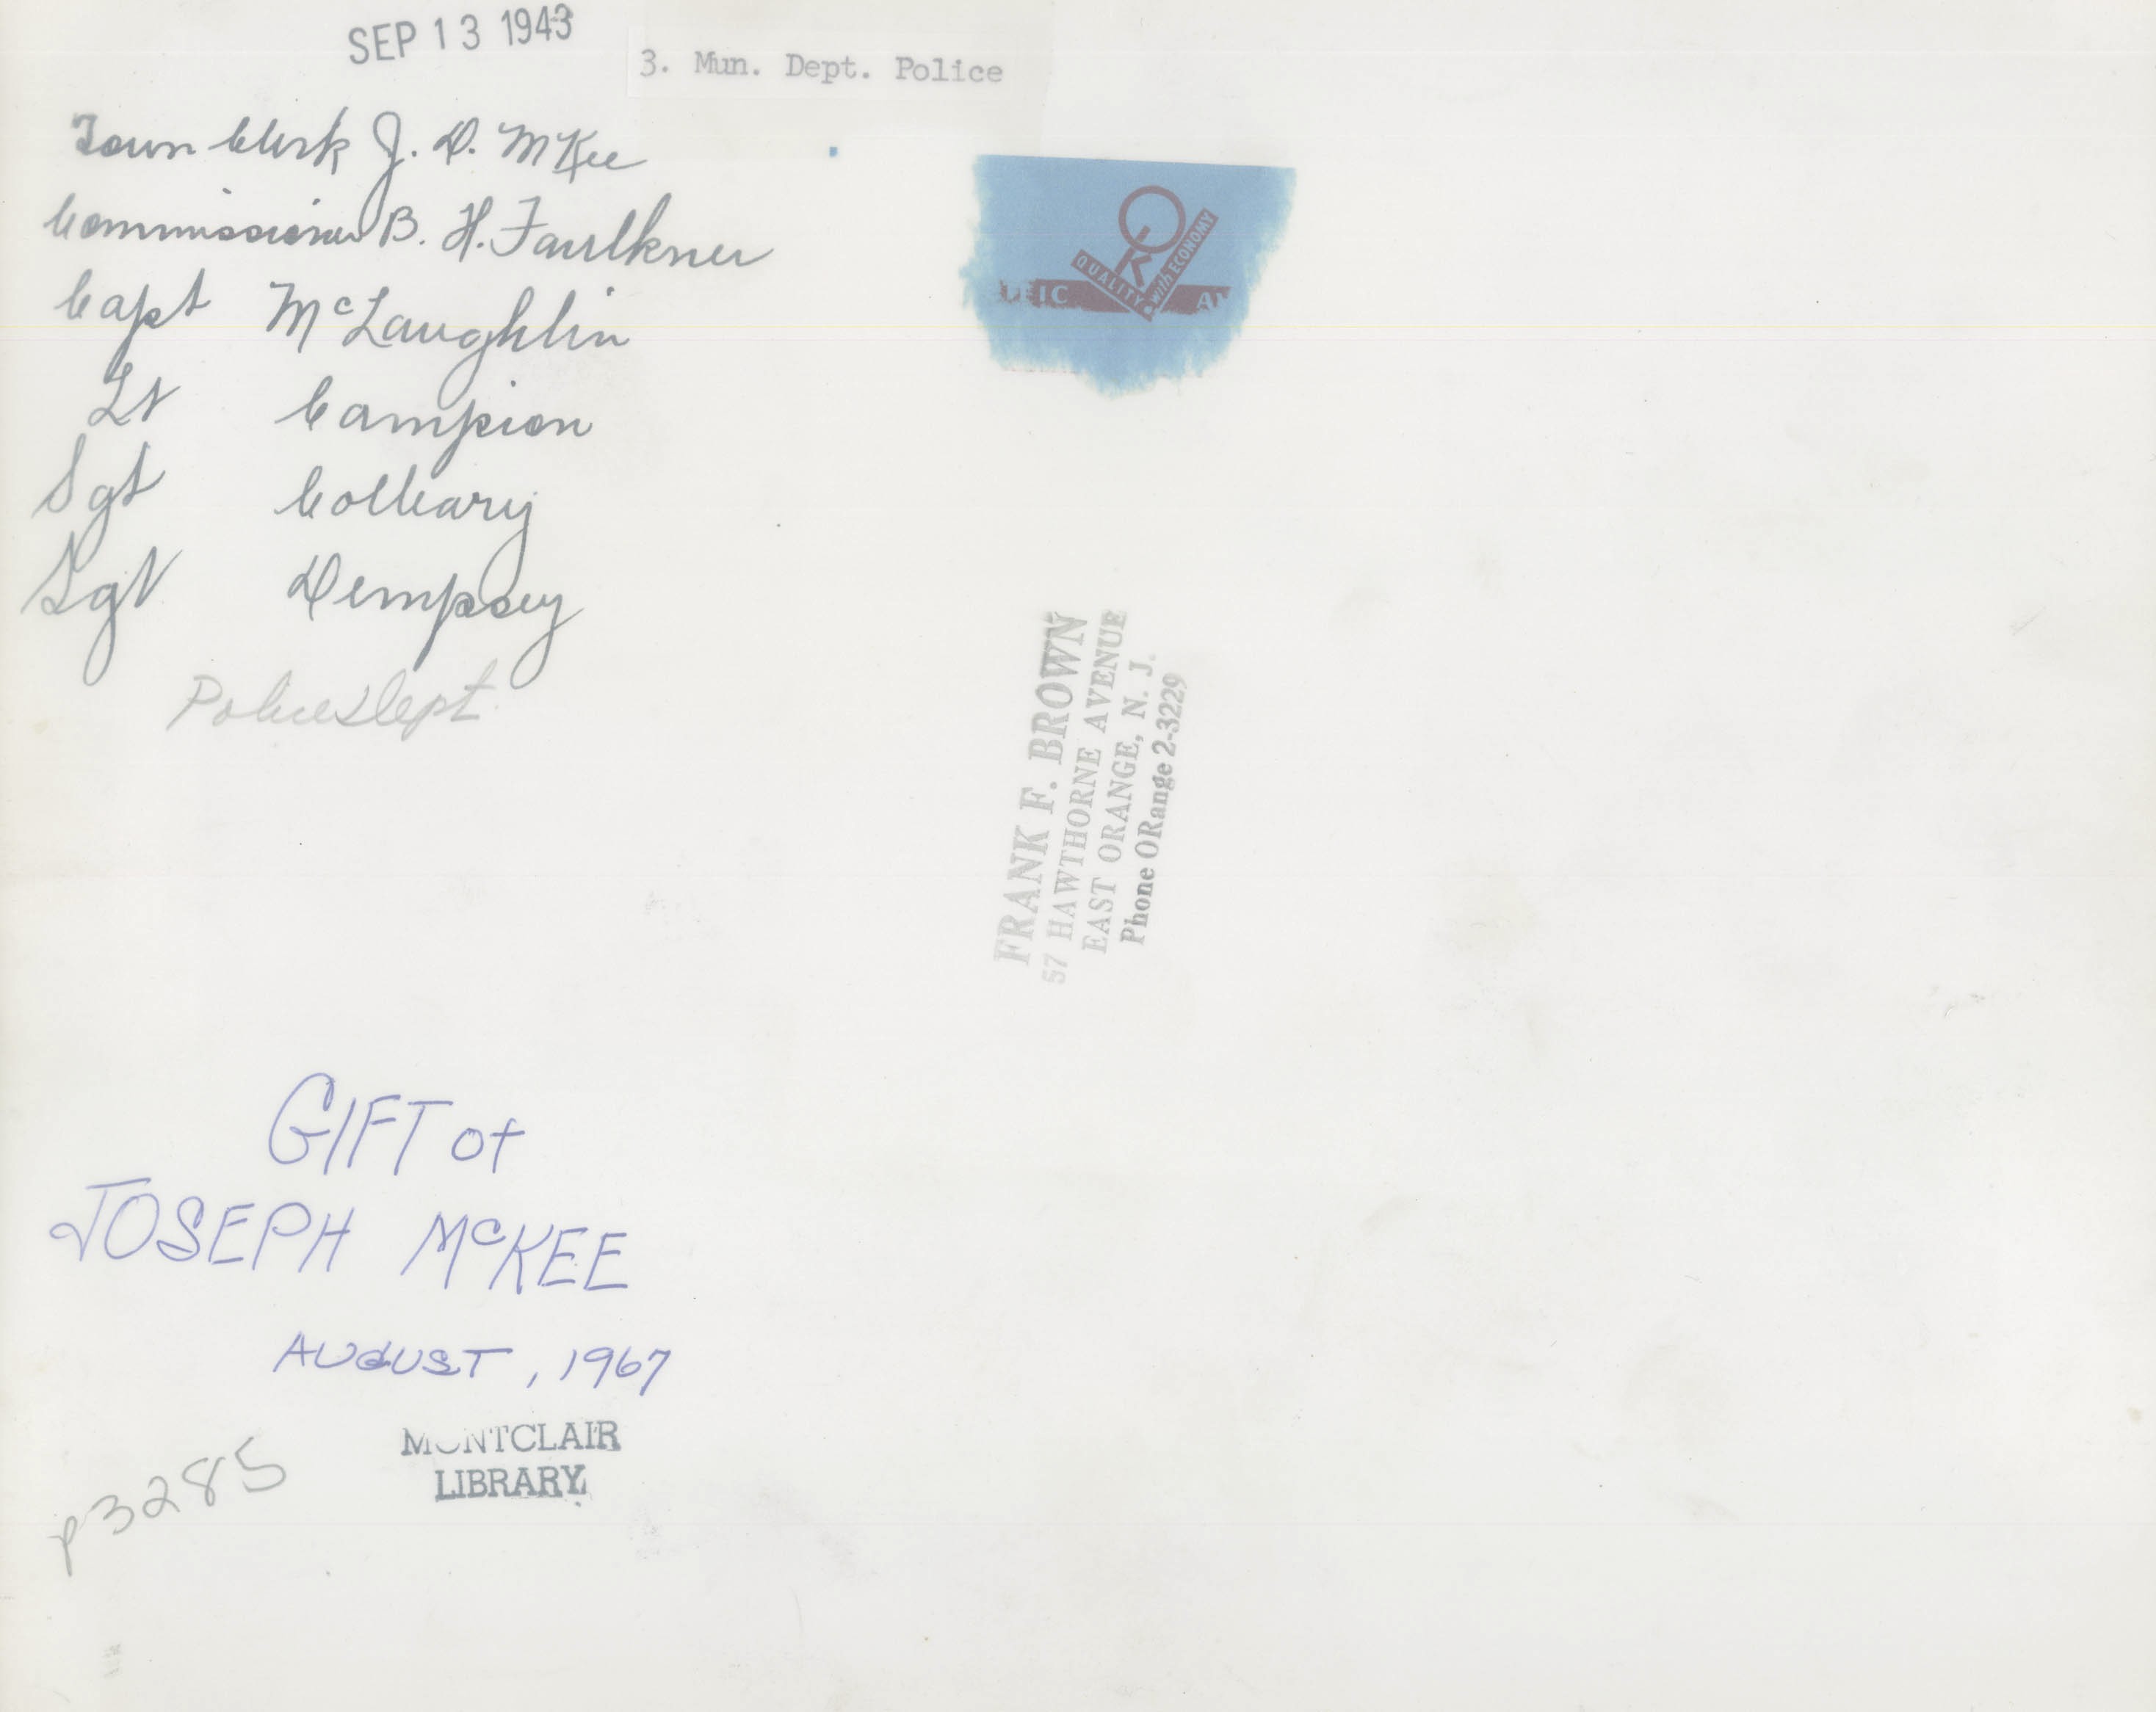 SEP 13 1943
3. Mun. Dept. Police
Town Clerk J. D. McKee
Commissioner B. H. Faulkner
Capt McLaughlin
Lt Campion
Sgt Colleary
Sgt Dempsey
Police Dept.
QUALITY with ECONOMY
FRANK F. BROWN
57 HAWTHORNE AVENUE
EAST ORANGE, N. J.
Phone ORange 2-3229
GIFT of
JOSEPH McKEE
AUGUST, 1967
MONTCLAIR
LIBRARY
p3285